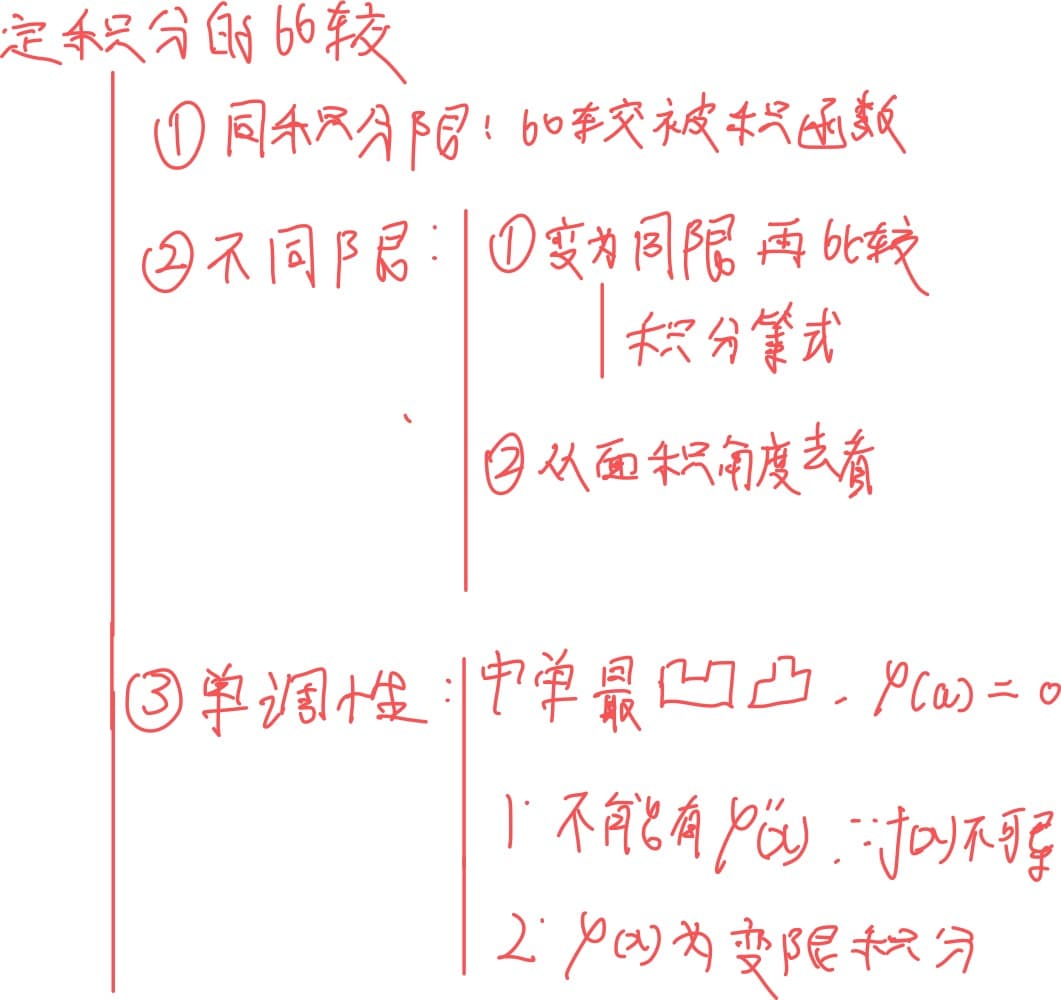 定积分的比较
①同积分限:比较被积函数
②不同限:
①变为同限再比较
积分等式
②从面积角度去看
③单调性:
中单最凹凸.φ(a)=0
1.不能有φ''(x),∵f(x)不可导
2.φ(x)为变限积分